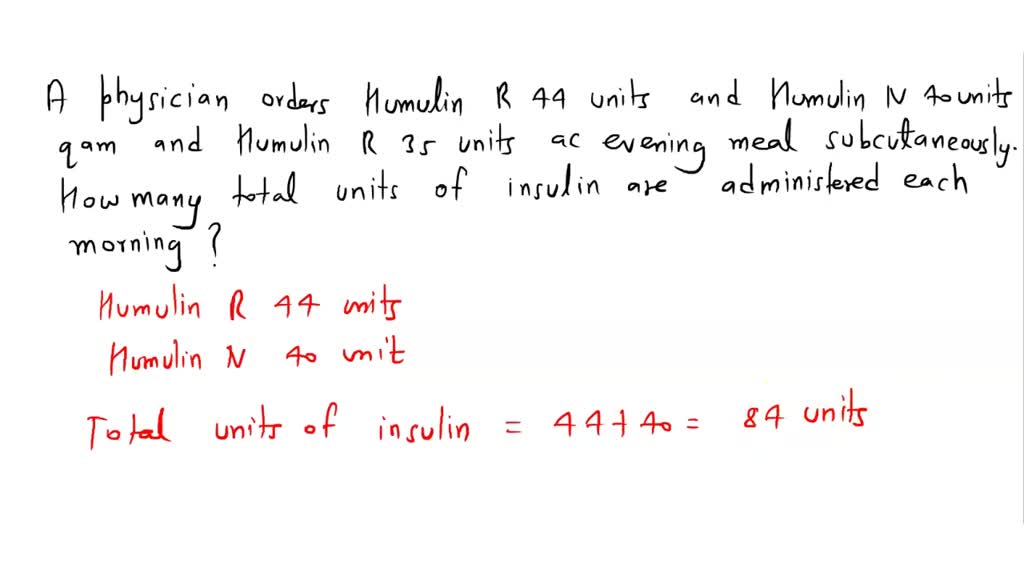 A physician orders Humulin R 44 units and Humulin N 40 units
qam and Humulin R 35 units ac evening meal subcutaneously.
How many total units of insulin are administered each
morning ?
Humulin R 44 units
Humulin N 40 unit
Total units of insulin = 44+40 = 84 units